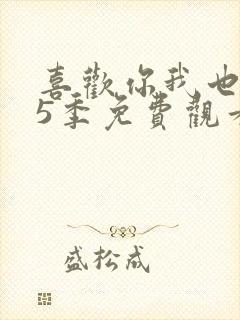 喜歡你我也
5季免費觀看
盛松成